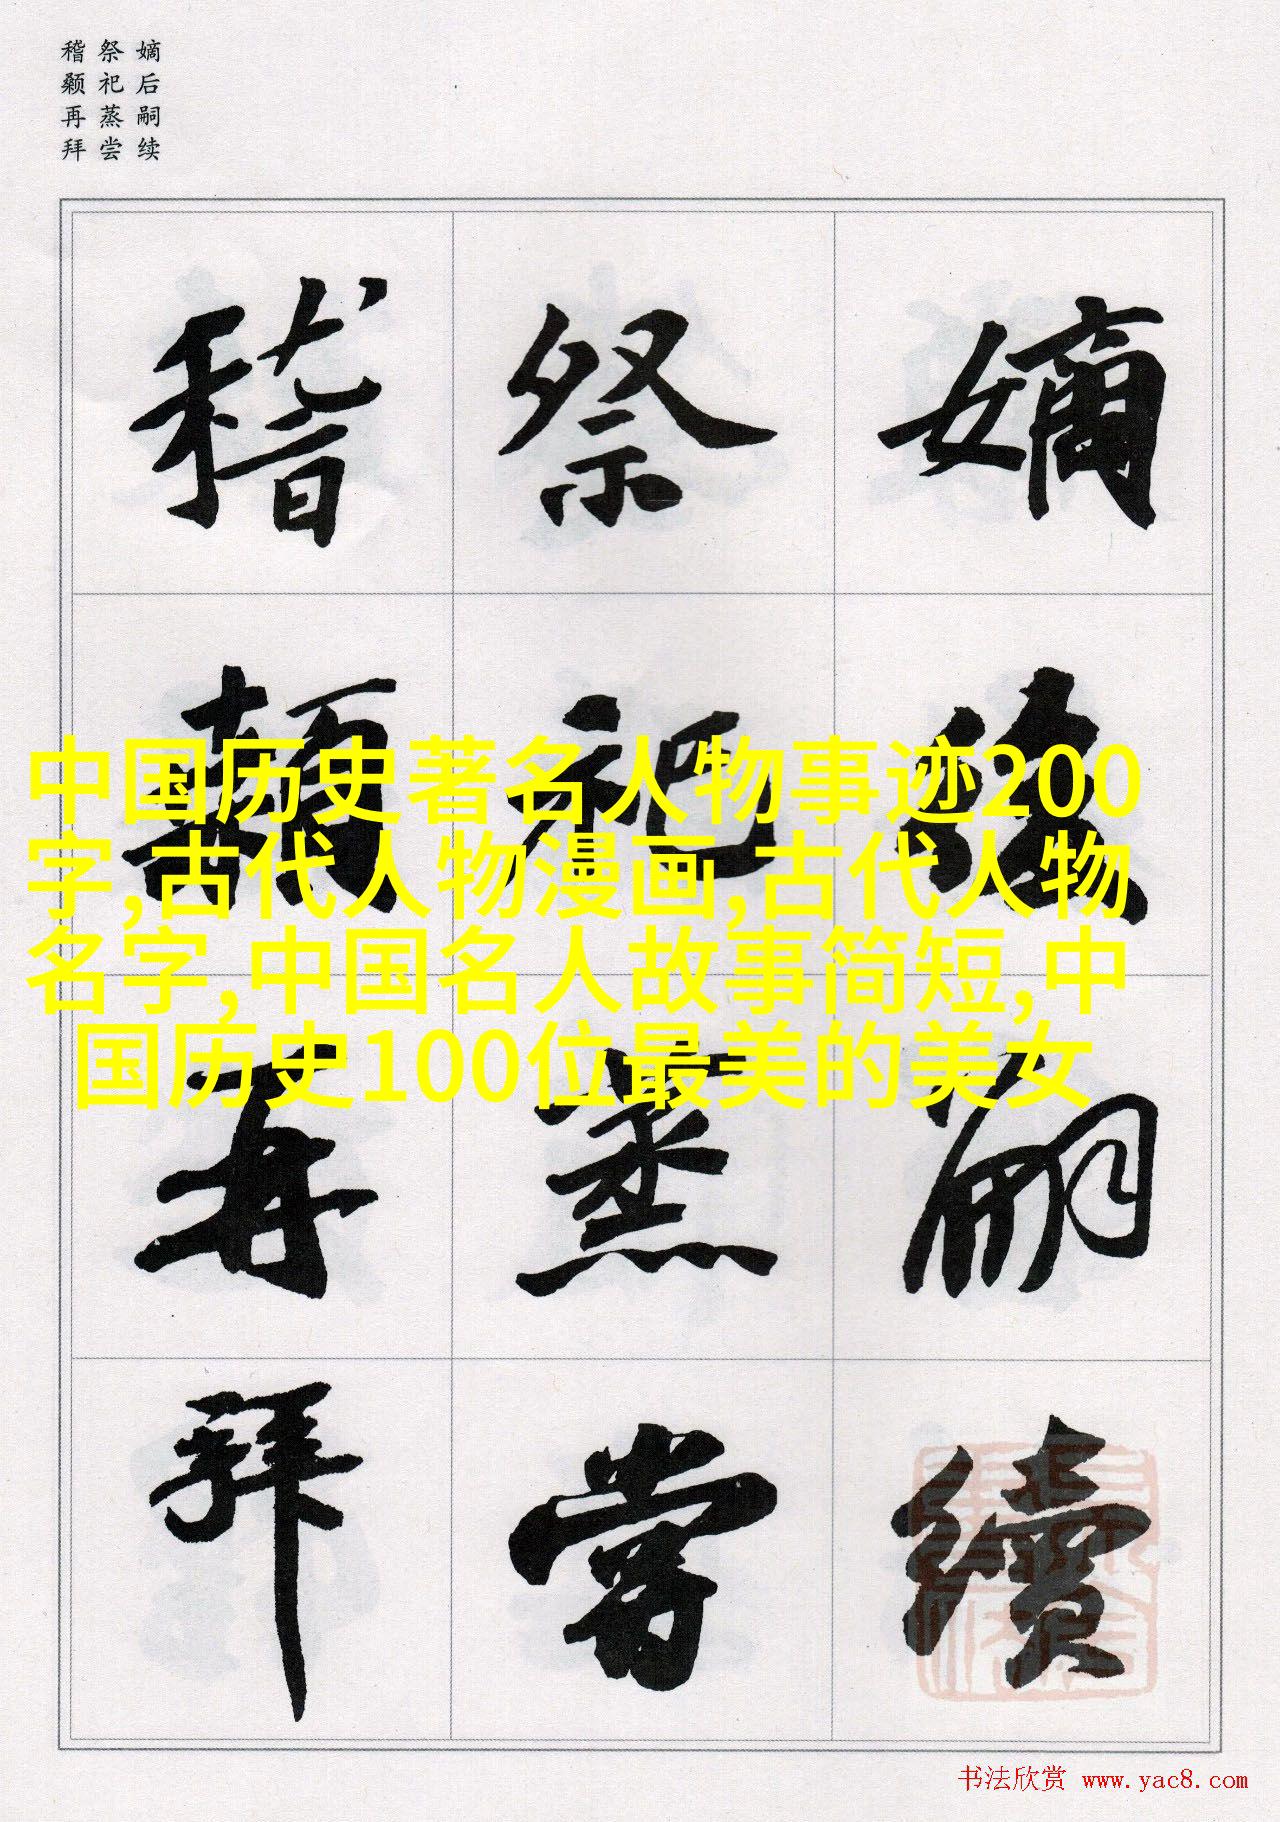 嫡后嗣续
祭祀蒸尝
稽颡再拜
嫡後嗣續
祭祀蒸嘗
稽顙再拜
中国历史著名人物事迹200
字,古代人物漫画,古代人物
名字,中国名人故事简短,中
国历史100位最美的美女
书法欣赏 www.yac8.com